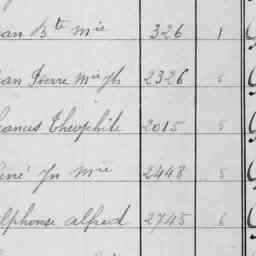 ean Bte Mie 326 1
ean Pierre 2326
rancis Théophile 2015 5
ené Jn Mie 2448 5
lphonse alfred 2745 6